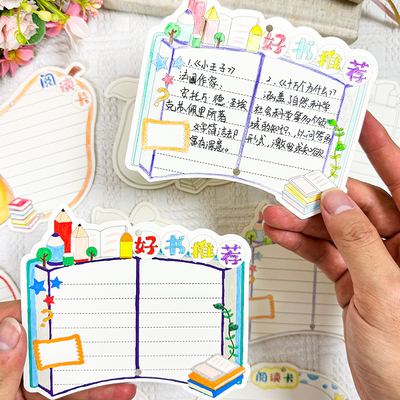 阅读卡
好书推荐
1.《小王子》
法国作家,
安托万·德·圣埃
克苏·佩里所著
文字简洁却
富有深意。
2.《十万个为什么》
涵盖自然科学
社会科学等多个领
域的知识,以问答的
形式,激发求知欲
好书推荐
阅读卡